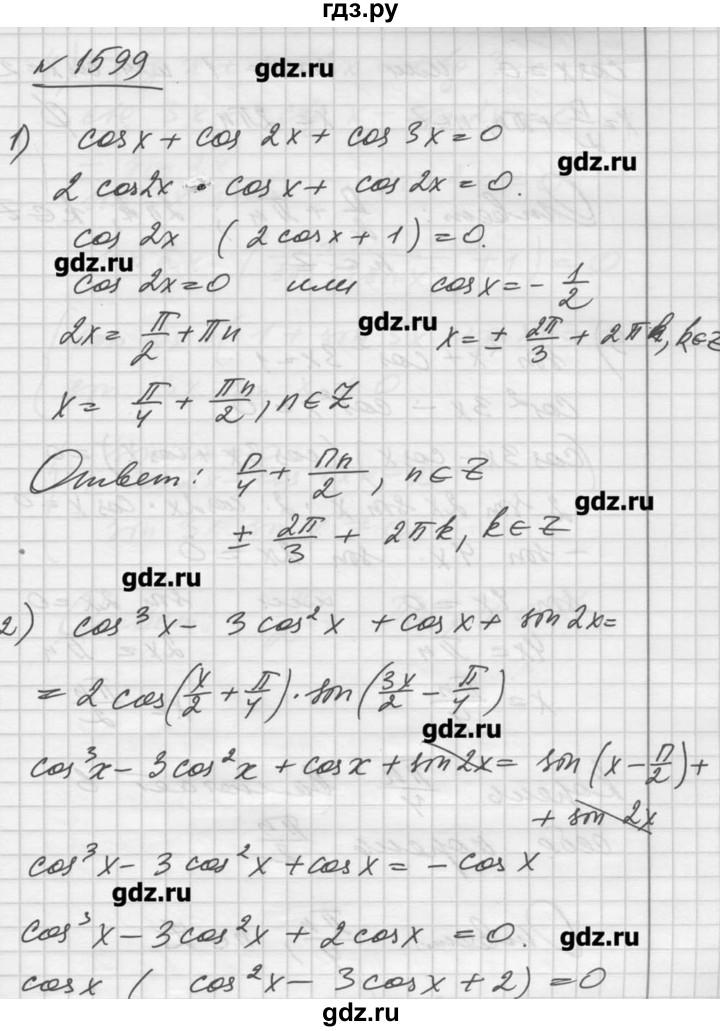 гдз.ру
№ 1599
gdz.ru
1) cos x + cos 2x + cos 3x = 0
gdz.ru
2 cos2x · cos x + cos 2x = 0.
cos 2x (2cosx + 1) = 0.
gdz.ru
cos 2x = 0 или cos x = - 1/2
gdz.ru
2x = π/2 + πn x = ± 2π/3 + 2πk, k∈Z
x = π/4 + πn/2, n∈Z
Ответ: π/4 + πn/2, n∈Z
gdz.ru
± 2π/3 + 2πk, k∈Z
gdz.ru
2) cos³x - 3cos²x + cosx + sin2x =
= 2cos(x/2 + π/4)·sin(3x/2 - π/4)
gdz.ru
cos³x - 3cos²x + cosx + sin2x = sin(x - π/2) +
+ sin 2x
cos³x - 3cos²x + cosx = - cosx
gdz.ru
cos³x - 3cos²x + 2cosx = 0.
gdz.ru
cosx (cos²x - 3cosx + 2) = 0
gdz.ru